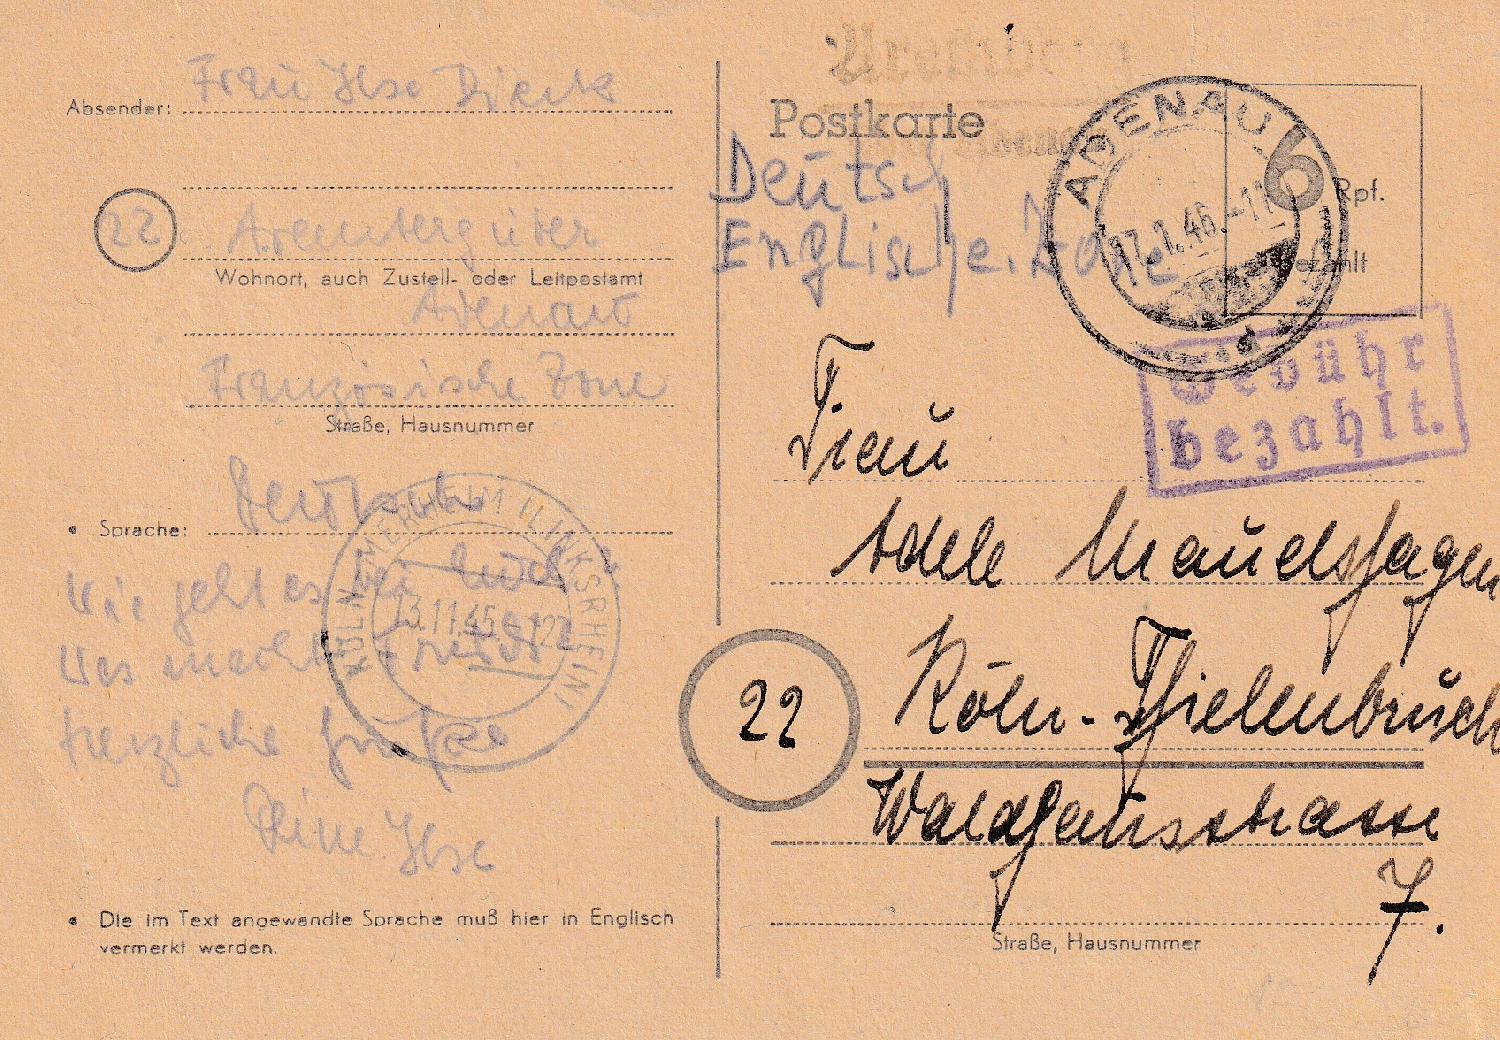 Absender: Frau Ilse Dierk
22
Wohnort, auch Zustell- oder Leitpostamt
Adenau
Französische Zone
Straße, Hausnummer
• Sprache: Deutsch
Wie geht es bei Euch?
Was macht
herzliche Grüße
Deine Ilse
KÖLN-MERHEIM (LINKSRHEIN)
13.11.45
• Die im Text angewandte Sprache muß hier in Englisch
vermerkt werden.
Postkarte
Deutsch
Englische Zone
ADENAU
17.1.46.-11
6 Rpf.
bezahlt
Gebühr
bezahlt.
Frau
Adele Mauelshagen
22
Köln-Thielenbruch
Straße, Hausnummer
7.